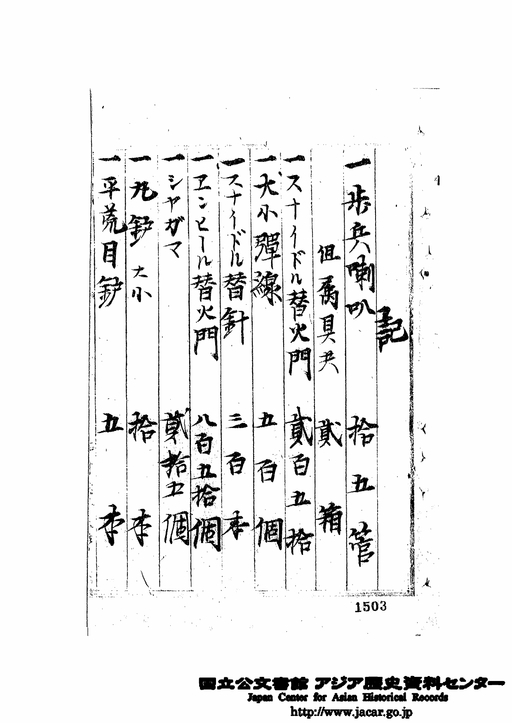 記
一 歩兵喇叭 拾五管
但属具共 貳箱
一 スナイドル替火門 貳百五拾
一 大小彈線 五百個
一 スナイドル替針 三百本
一 ヱンヒール替火門 八百五拾個
一 シヤガマ 貳拾五個
一 丸鈩 大小 拾本
一 平荒目鈩 五本
1503
国立公文書館 アジア歴史資料センター
Japan Center for Asian Historical Records
http://www.jacar.go.jp